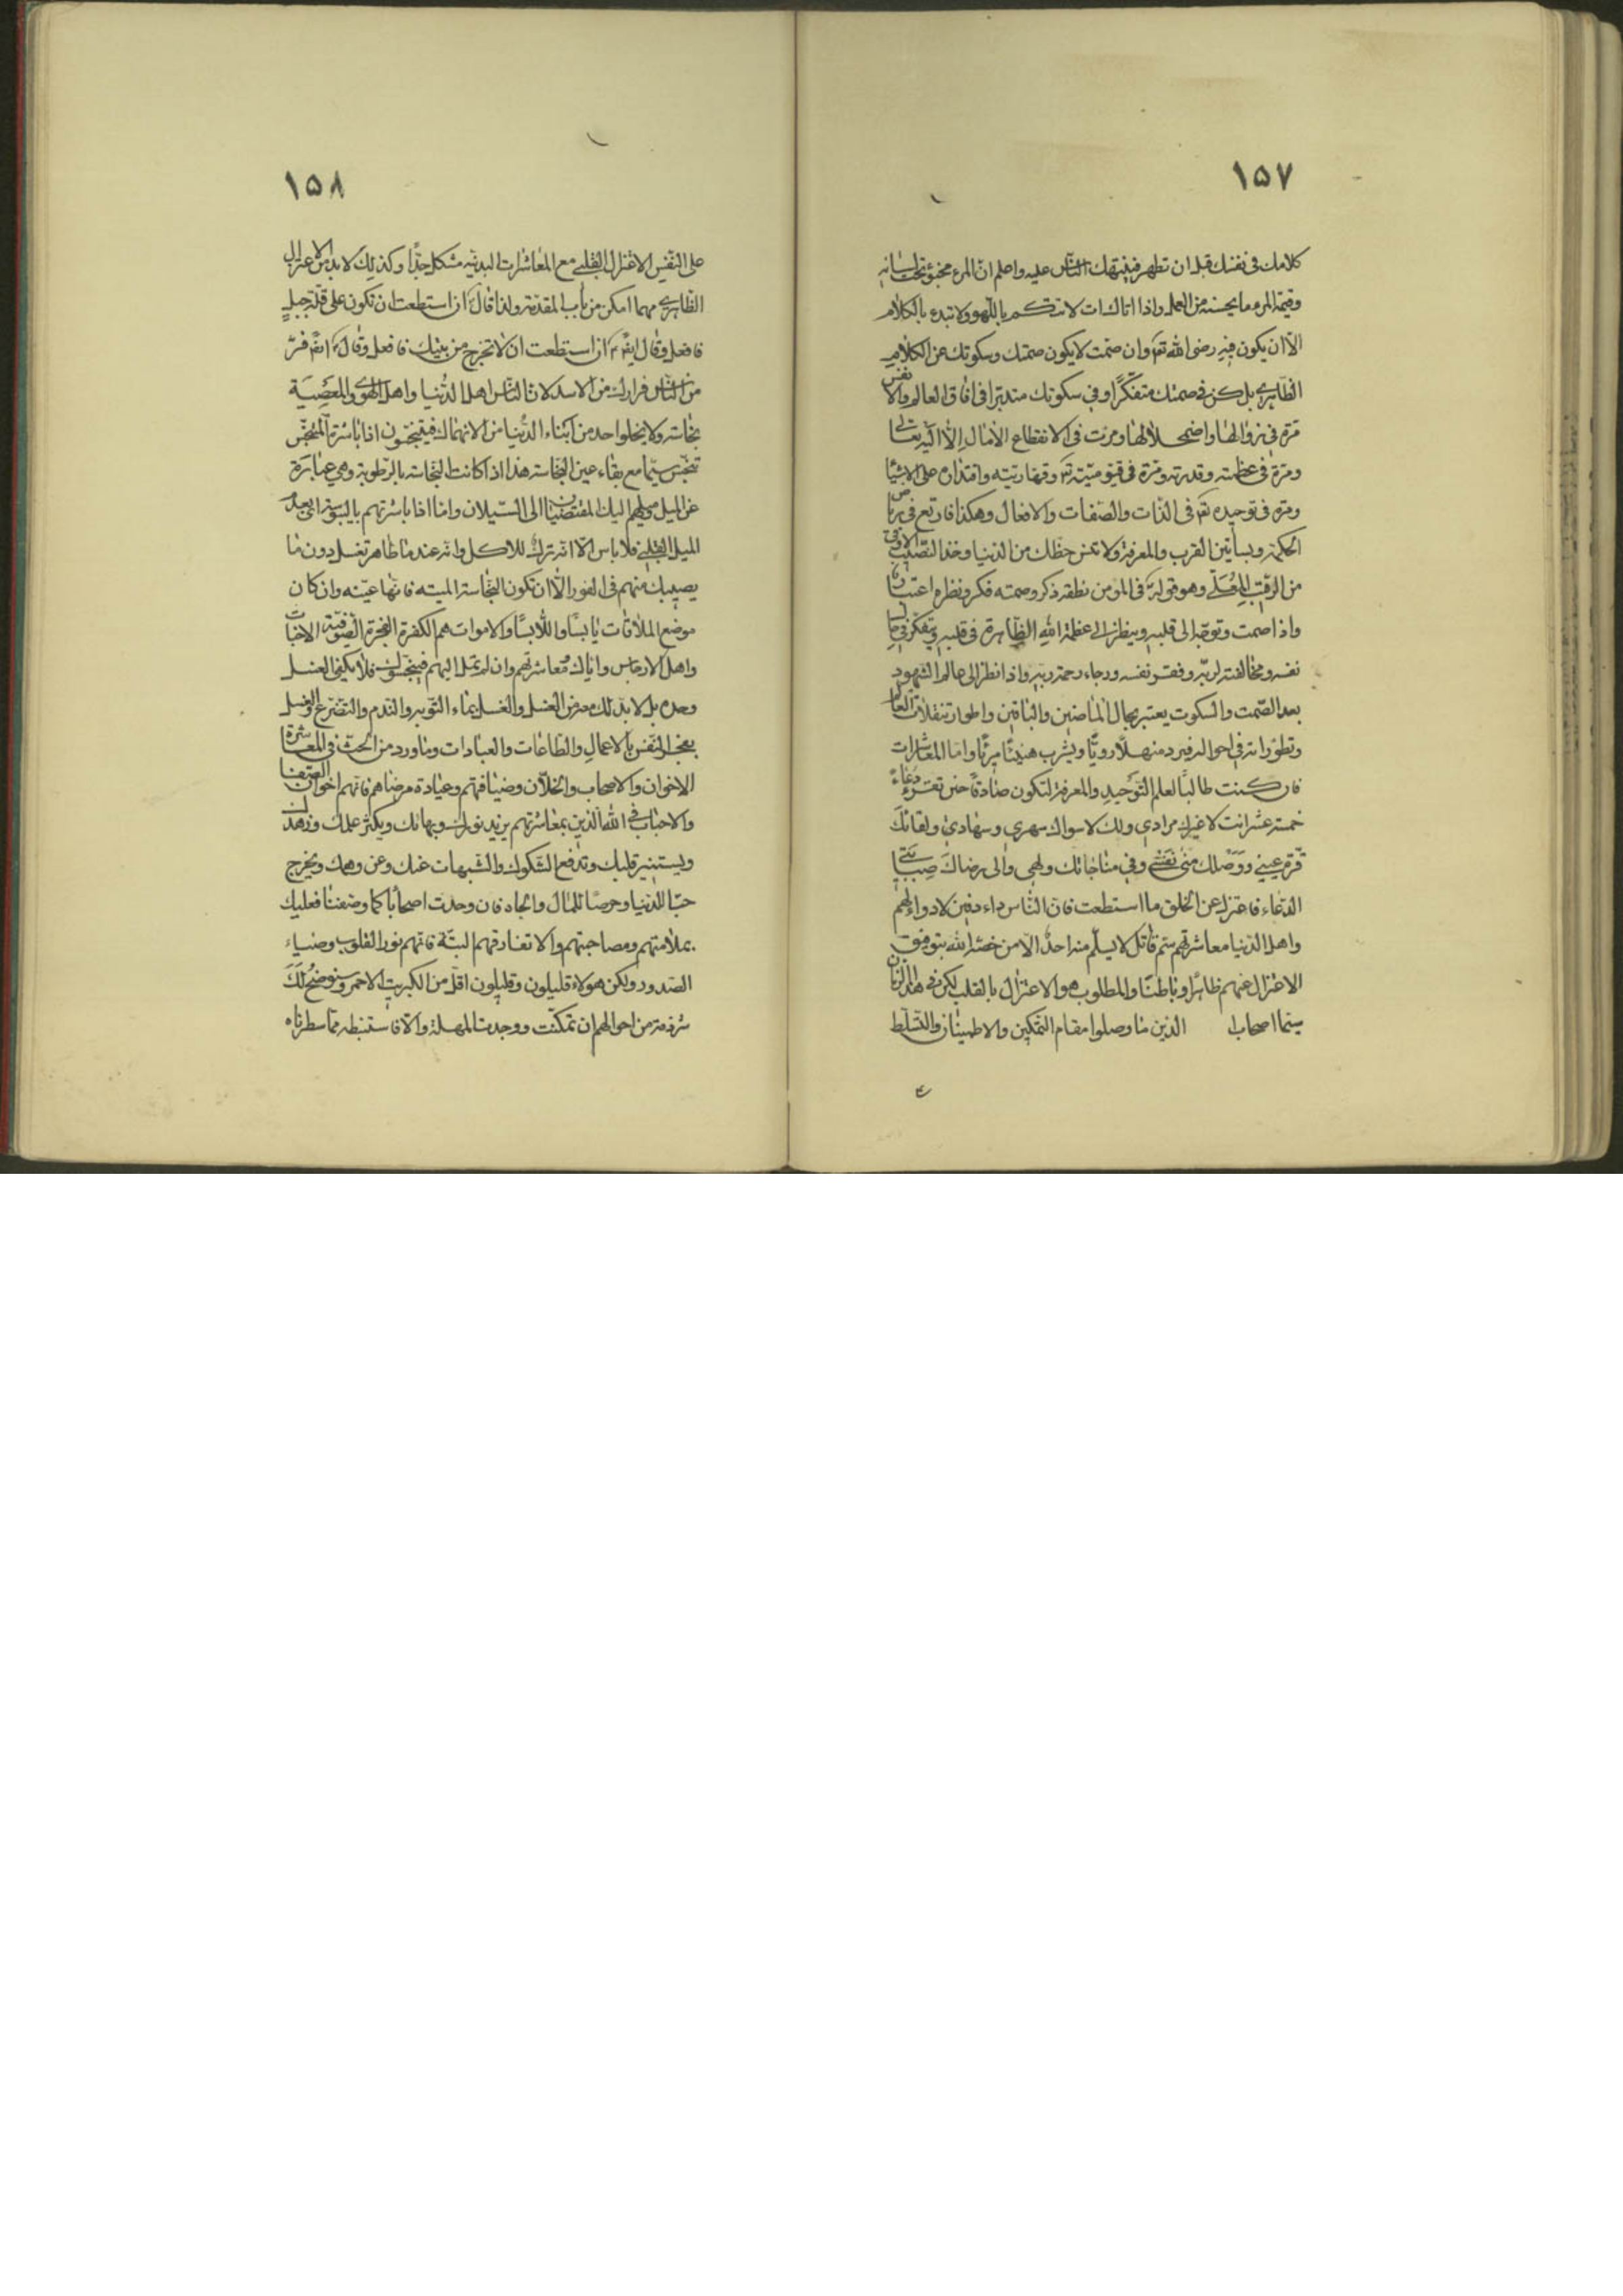 ١٥٧
كلامك فى نفسك قبل ان تظهر فينبهك الناس عليه واعلم ان المرء مخبوء تحت لسانه
وقيمة المرء ما يحسنه من العمل واذا اتاك ات لا تتكلم باللهو ولا تبدء بالكلام
الا ان يكون فيه رضى الله تع وان صمت لا يكون صمتك وسكوتك عن الكلام
الظاهرى بل كن فى صمتك متفكرا وفى سكوتك متدبرا فى افاق العالم والانفس
مرة فى زوالها واضمحلالها ومرت فى الانقطاع الامال الا اليه تعالى
ومرة فى عظمته وقدرته ومرة فى قيوميته تع وقهاريته واقتداره على الاشيا
ومرة فى توحيده تع فى الذات والصفات والافعال وهكذا فارتع فى رياض
الحكمة وبساتين القرب والمعرفة ولا تنس حظك من الدنيا وخذ النصيب الاوفى
من الرقيب المعلى وهو قوله فى المومن نطقه ذكر وصمته فكر ونظره اعتباره
واذا صمت وتوجه الى قلبه وينظر الى عظمة الله الظاهرة فى قلبه ويتفكر فى حال
نفسه ومخالفته لربه وفقر نفسه ورجاء رحمة ربه واذا نظر الى عالم الشهود
بعد الصمت والسكوت يعتبر بحال الماضين والباقين واطوار تنقلات العالم
وتطوراته فى احواله فيرد منهلا رويا ويشرب هنيئا مريا واما المعاشرات
فان كنت طالبا لعلم التوحيد والمعرفة لتكون صادقا حين تقرء دعاء
خمسة عشر انت لا غيرك مرادى ولك لا سواك سهرى وسهادى ولقائك
قرة عينى ووصلك منى نفسى وفى مناجاتك ولهى والى رضاك صبابتى
الدعاء فاعتزل عن الخلق ما استطعت فان الناس داء دفين لا دواء لهم
واهل الدنيا معاشرتهم ستم قاتل لا يسلم منه احد الا من خصه الله بتوفيق
الاعتزال عنهم ظاهرا وباطنا والمطلوب هو الاعتزال بالقلب لكن فى هذا الزمان
سيما اصحاب الذين ما وصلوا مقام التمكين والاطمينان والتسلط
١٥٨
على النفس الاعتزال القلبى مع المعاشرات البدنيه مشكل جدا وكذلك لا بد من الاعتزال
الظاهرى مهما امكن من باب المقدمة ولذا قال ان استطعت ان تكون على قلة جبل
فافعل وقال ايض ان استطعت ان لا تخرج من بيتك فافعل وقال ايض فر
من الناس فرارك من الاسد لان الناس اهل الدنيا واهل الهوى والمعصية
نجاسته ولا يخلوا احد من ابناء الدنيا من الانهماك فيتنجسون اذا باشرة المتنجس
تنجس سيما مع بقاء عين النجاسة هذا اذا كانت النجاسه بالرطوبة وهى عبارة
عن الميل وميلهم اليك المقتضيان الى السيلان واما اذا باشرتهم باليبوسة اى بعدم
الميل القلبى فلا باس الا انه ترك للاكل وانه عندما ظاهر تغسل دون ما
يصيبك منهم فى الفور الا ان تكون النجاسة الميته فانها عينه وان كان
موضع الملاقات يابسا واللابسا والاموات هم الكفرة الفجرة الصوفية الاخباث
واهل الارجاس واياك ومعاشرتهم وان لم تمل اليهم فينجسونك فلا يكفى الغسل
وحده بل لا بد لك معه من الغسل والغسل بماء التوبه والندم والتضرع والغسل
يعجر النفس بالاعمال والطاعات والعبادات وما ورد من الحث فى المعاشرة
الاخوان والاصحاب والخلان وضيافتهم وعيادة مرضاهم فانهم اخوان الصفا
والاحباب فى الله الذين بمعاشرتهم يزيد نورك وبهائك ويكثر علمك وزهدك
ويستنير قلبك وتدفع الشكوك والشبهات عنك وعن وهمك ويخرج
حبا للدنيا وحرصا للمال والجاه فان وجدت اصحابا كما وصفنا فعليك
بملازمتهم ومصاحبتهم والا تفارقهم البتة فانهم نور القلوب وضياء
الصدور ولكن هولاء قليلون وقليلون اقل من الكبريت الاحمر وسنوضح لك
شرذمة من احوالهم ان تمكنت ووجدت المهلة والا فاستنبطه مما سطرناه